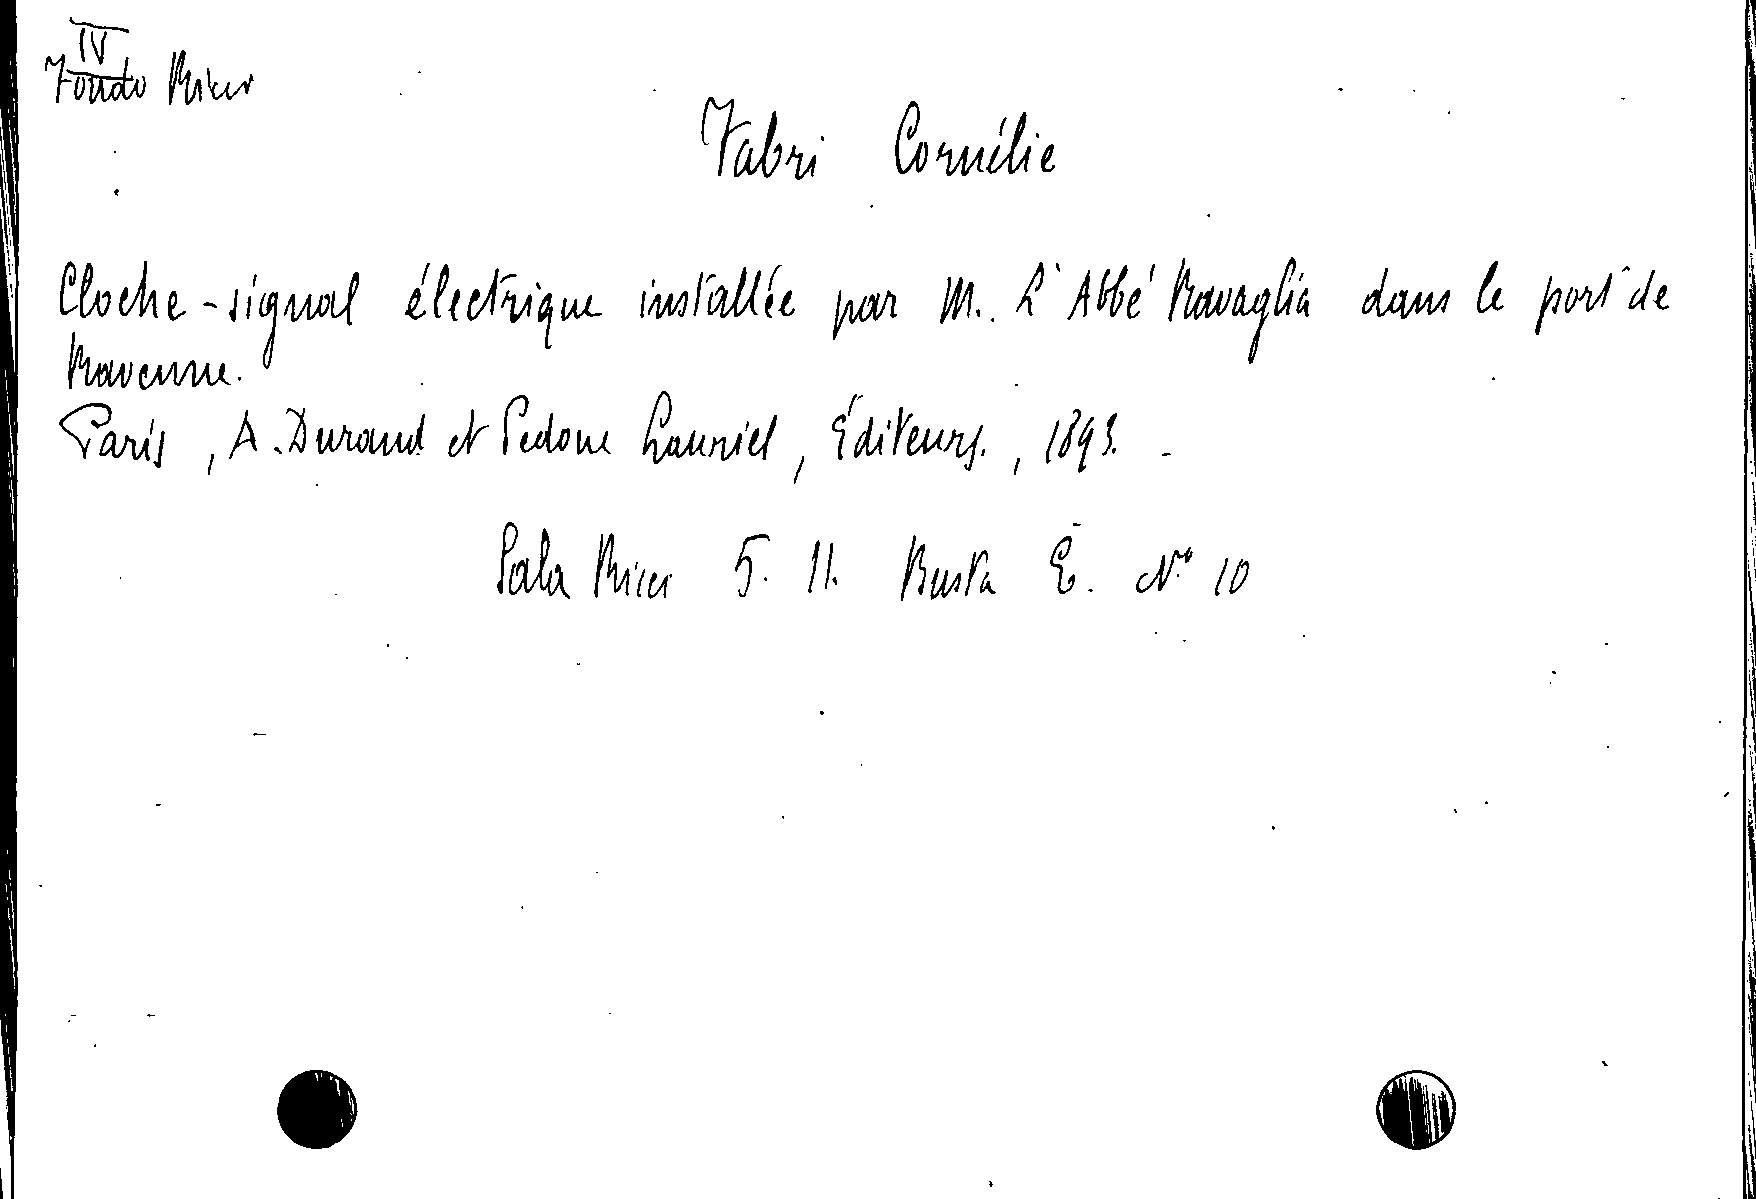 IV
Fondo Ricci
Fabri Cornélie
Cloche-signal électrique installée par M. L'Abbé Ravaglia dans le port de
Ravenne.
Paris, A. Durand et Pedone Lauriel, Éditeurs., 1893.
Sala Ricci 5. 11. Busta E. No 10